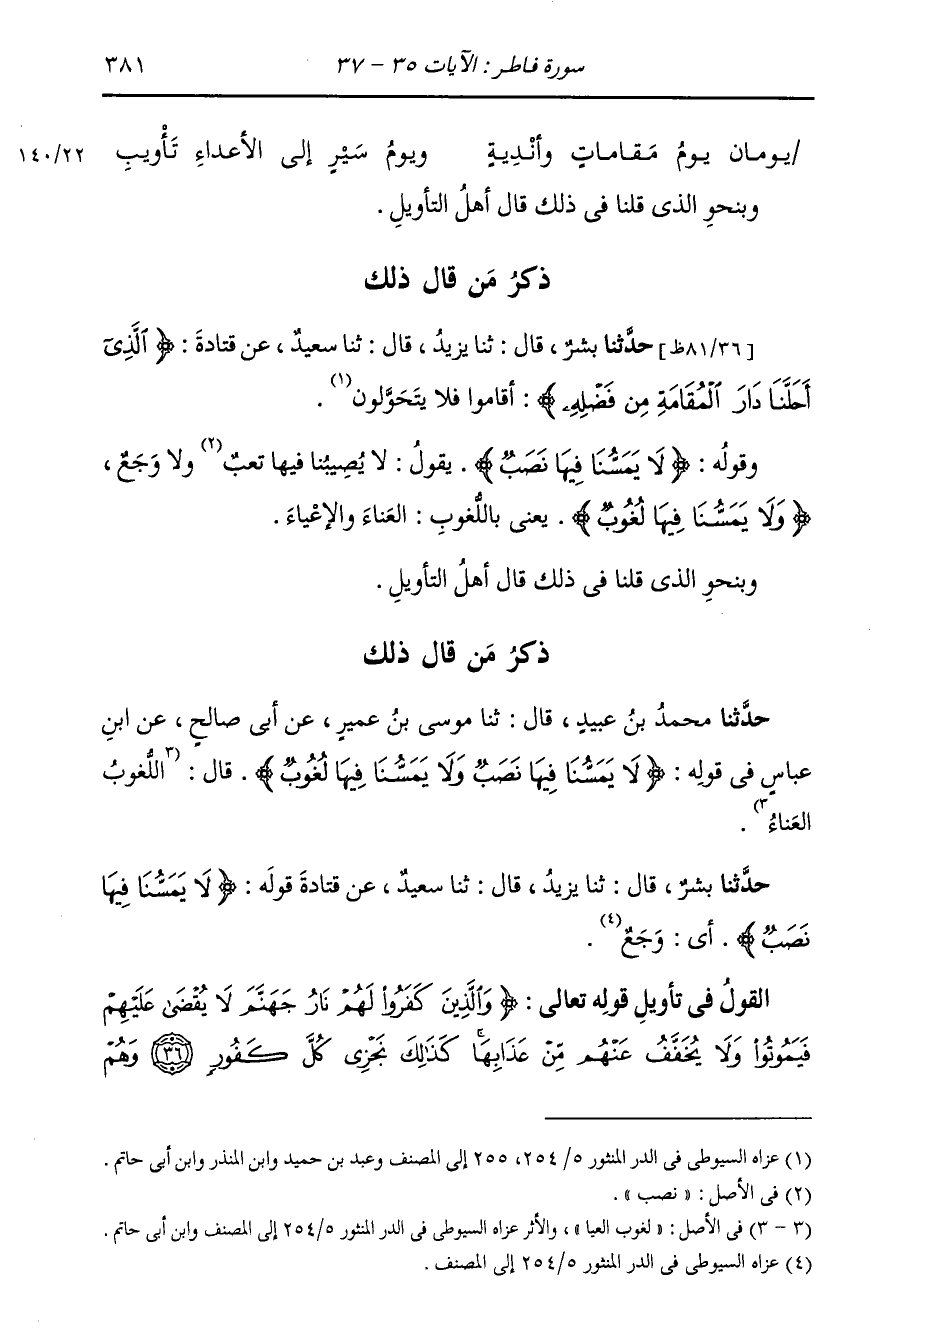 سورة فاطر : الآيات ٣٥ - ٣٧ ٣٨١
/يومان يومُ مَقاماتٍ وأنْديةٍ ويومُ سَيْرٍ إلى الأعداءِ تَأْويبِ ١٤٠/٢٢
وبنحوِ الذى قلنا فى ذلك قال أهلُ التأويلِ .
ذكرُ مَن قال ذلك
[٨١/٣٦ظ] حدَّثنا بشرٌ ، قال : ثنا يزيدُ ، قال : ثنا سعيدٌ ، عن قتادةَ : ﴿ ٱلَّذِىٓ
أَحَلَّنَا دَارَ ٱلْمُقَامَةِ مِن فَضْلِهِۦ ﴾ : أقاموا فلا يتَحَوَّلون(١) .
وقولُه : ﴿ لَا يَمَسُّنَا فِيهَا نَصَبٌ ﴾ . يقولُ : لا يُصِيبُنا فيها تعبٌ(٢) ولا وَجَعٌ ،
﴿ وَلَا يَمَسُّنَا فِيهَا لُغُوبٌ ﴾ . يعنى باللُّغوبِ : العَناءَ والإعْياءَ .
وبنحوِ الذى قلنا فى ذلك قال أهلُ التأويلِ .
ذكرُ مَن قال ذلك
حدَّثنا محمدُ بنُ عبيدٍ ، قال : ثنا موسى بنُ عميرٍ ، عن أبى صالحٍ ، عن ابنِ
عباسٍ فى قولِه : ﴿ لَا يَمَسُّنَا فِيهَا نَصَبٌ وَلَا يَمَسُّنَا فِيهَا لُغُوبٌ ﴾ . قال : (٣اللُّغوبُ
العَناءُ٣) .
حدَّثنا بشرٌ ، قال : ثنا يزيدُ ، قال : ثنا سعيدٌ ، عن قتادةَ قولَه : ﴿ لَا يَمَسُّنَا فِيهَا
نَصَبٌ ﴾ . أى : وَجَعٌ(٤) .
القولُ فى تأويلِ قولِه تعالى : ﴿ وَٱلَّذِينَ كَفَرُوا۟ لَهُمْ نَارُ جَهَنَّمَ لَا يُقْضَىٰ عَلَيْهِمْ
فَيَمُوتُوا۟ وَلَا يُخَفَّفُ عَنْهُم مِّنْ عَذَابِهَا ۚ كَذَٰلِكَ نَجْزِى كُلَّ كَفُورٍ (٣٦) وَهُمْ
(١) عزاه السيوطى فى الدر المنثور ٥/ ٢٥٤، ٢٥٥ إلى المصنف وعبد بن حميد وابن المنذر وابن أبى حاتم .
(٢) فى الأصل : « نصب » .
(٣ - ٣) فى الأصل : « لغوب العيا » ، والأثر عزاه السيوطى فى الدر المنثور ٢٥٤/٥ إلى المصنف وابن أبى حاتم .
(٤) عزاه السيوطى فى الدر المنثور ٢٥٤/٥ إلى المصنف .